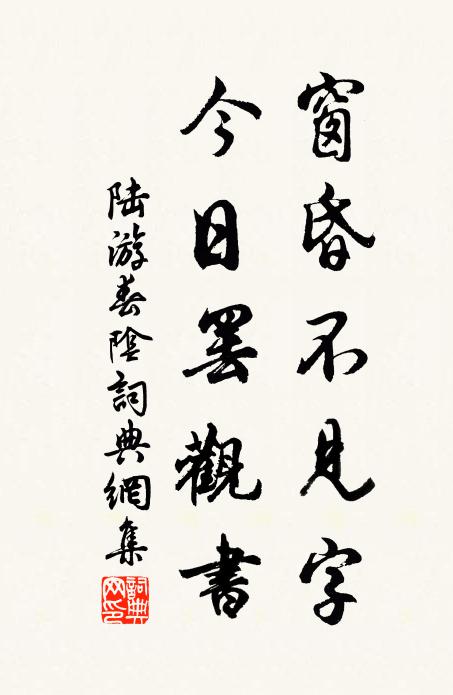 窗昏不見字
今日罢觀書
陆游春陰詞典網集
詞典网印